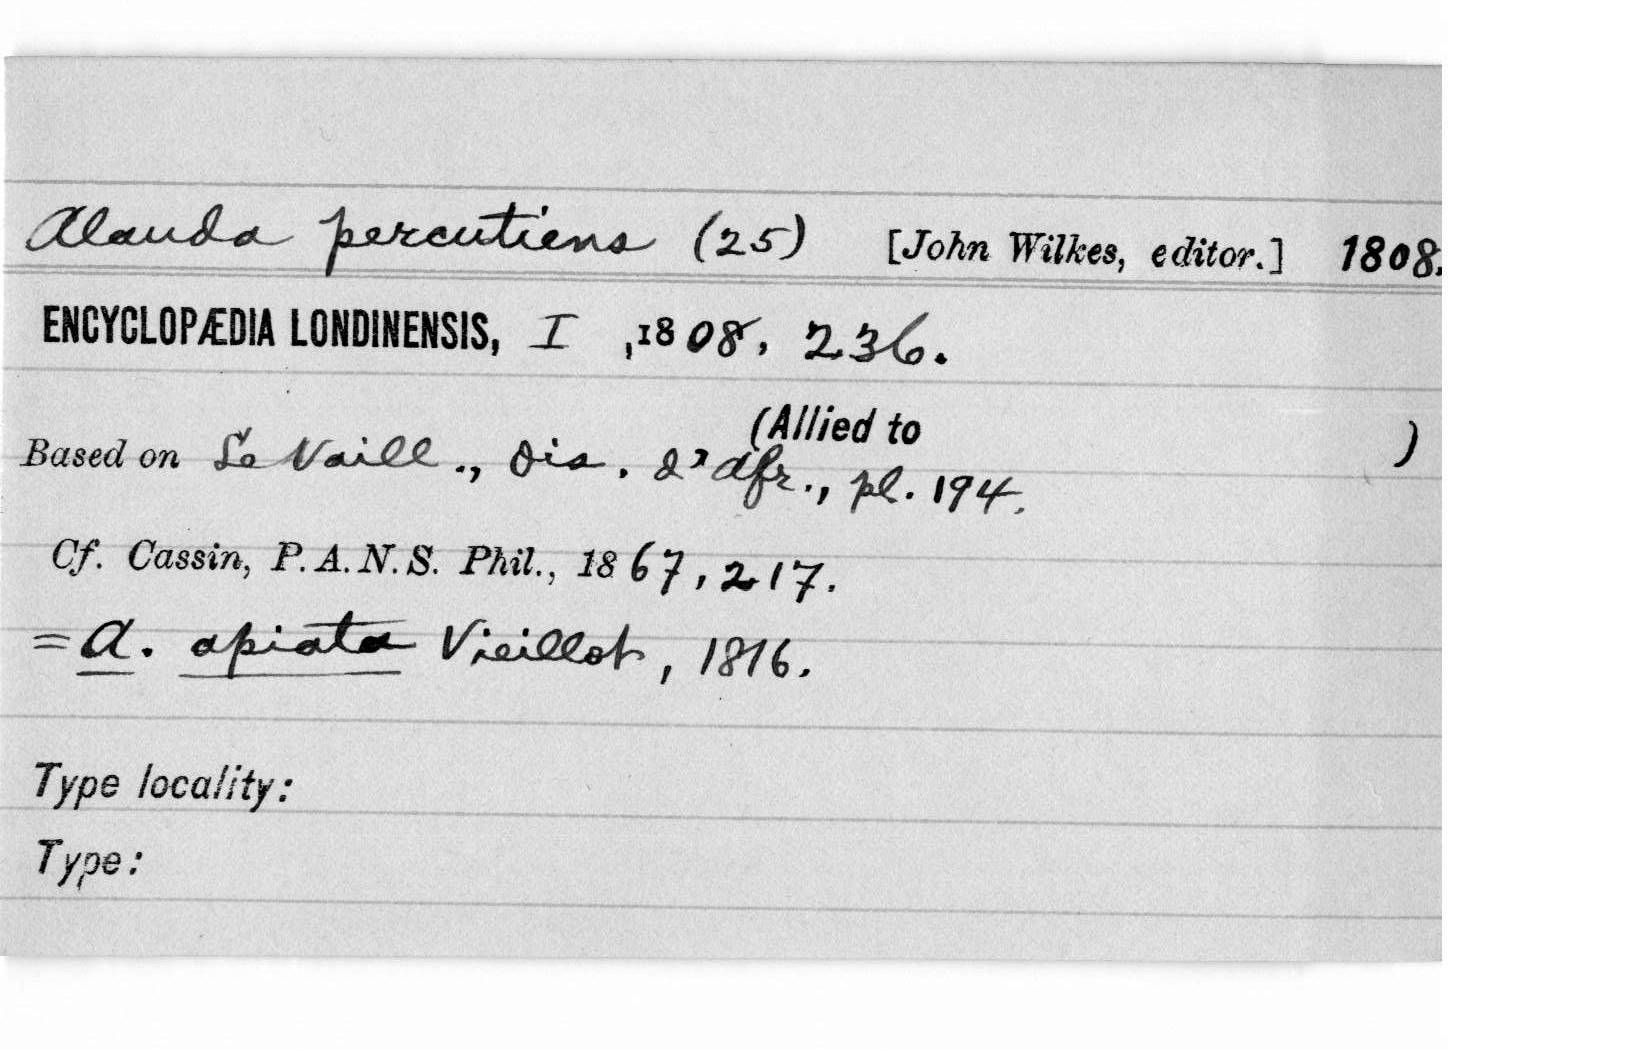 Alauda percutiens (25) [John Wilkes, editor.] 1808.
ENCYCLOPÆDIA LONDINENSIS, I ,1808, 236.
(Allied to )
Based on Le Vaill., Ois. d'Afr., pl. 194.
Cf. Cassin, P. A. N. S. Phil., 1867, 217.
= A. apiata Vieillot, 1816.
Type locality:
Type: